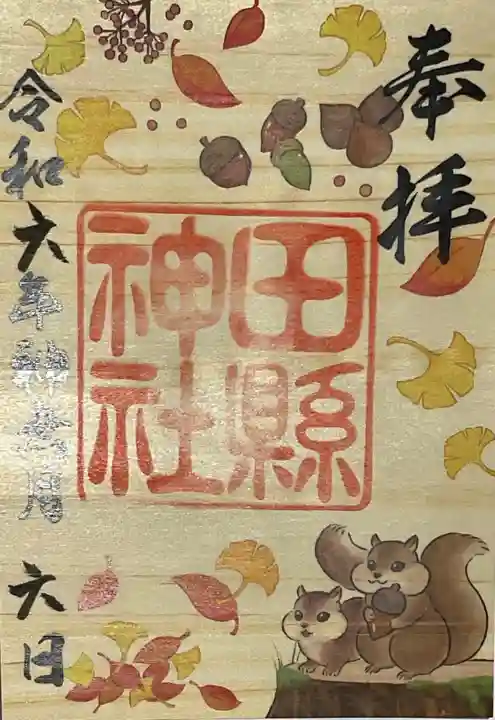 奉拝
田縣
神社
令和六年 六日